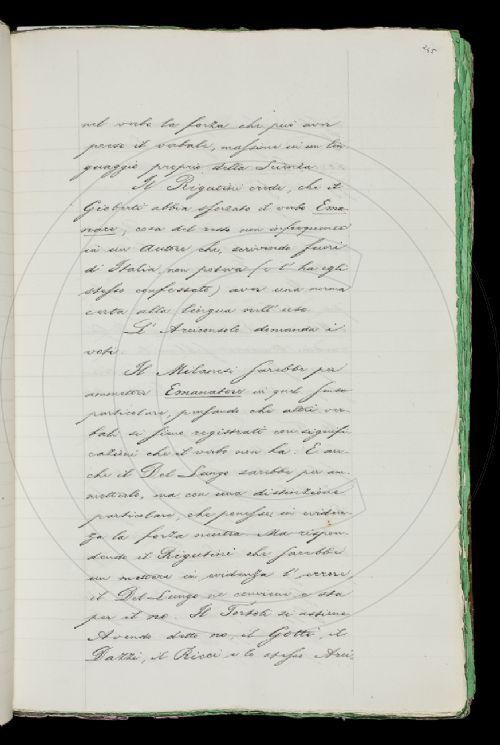 245
nel verbo la forza che può aver
perso il verbale, massime in un lin
guaggio proprio della Scienza.
Il Rigutini crede, che il
Gioberti abbia sforzato il verbo Ema-
nare, cosa del resto non infrequente
in un Autore che, scrivendo fuori
d'Italia, non poteva (e l'ha egli
stesso confessato) aver una norma
certa alla lingua nell'uso.
L'Arciconsolo domanda i
voti.
Il Milanesi sarebbe per
ammettere Emanatore in quel senso
particolare, pensando che altri ver
bali si sieno registrati con signifi
cazioni che il verbo non ha. E an-
che il Del Lungo sarebbe per am
metterlo, ma con una distinzione
particolare, che ponesse in eviden
za la forza neutra. Ma rispon
dendo il Rigutini che sarebbe
un mettere in evidenza l'errore,
il Del Lungo ne conviene e sta
per il no. Il Tortoli si astiene.
Avendo detto no, il Gotti, il
Dazzi, il Ricci e lo stesso Arci-